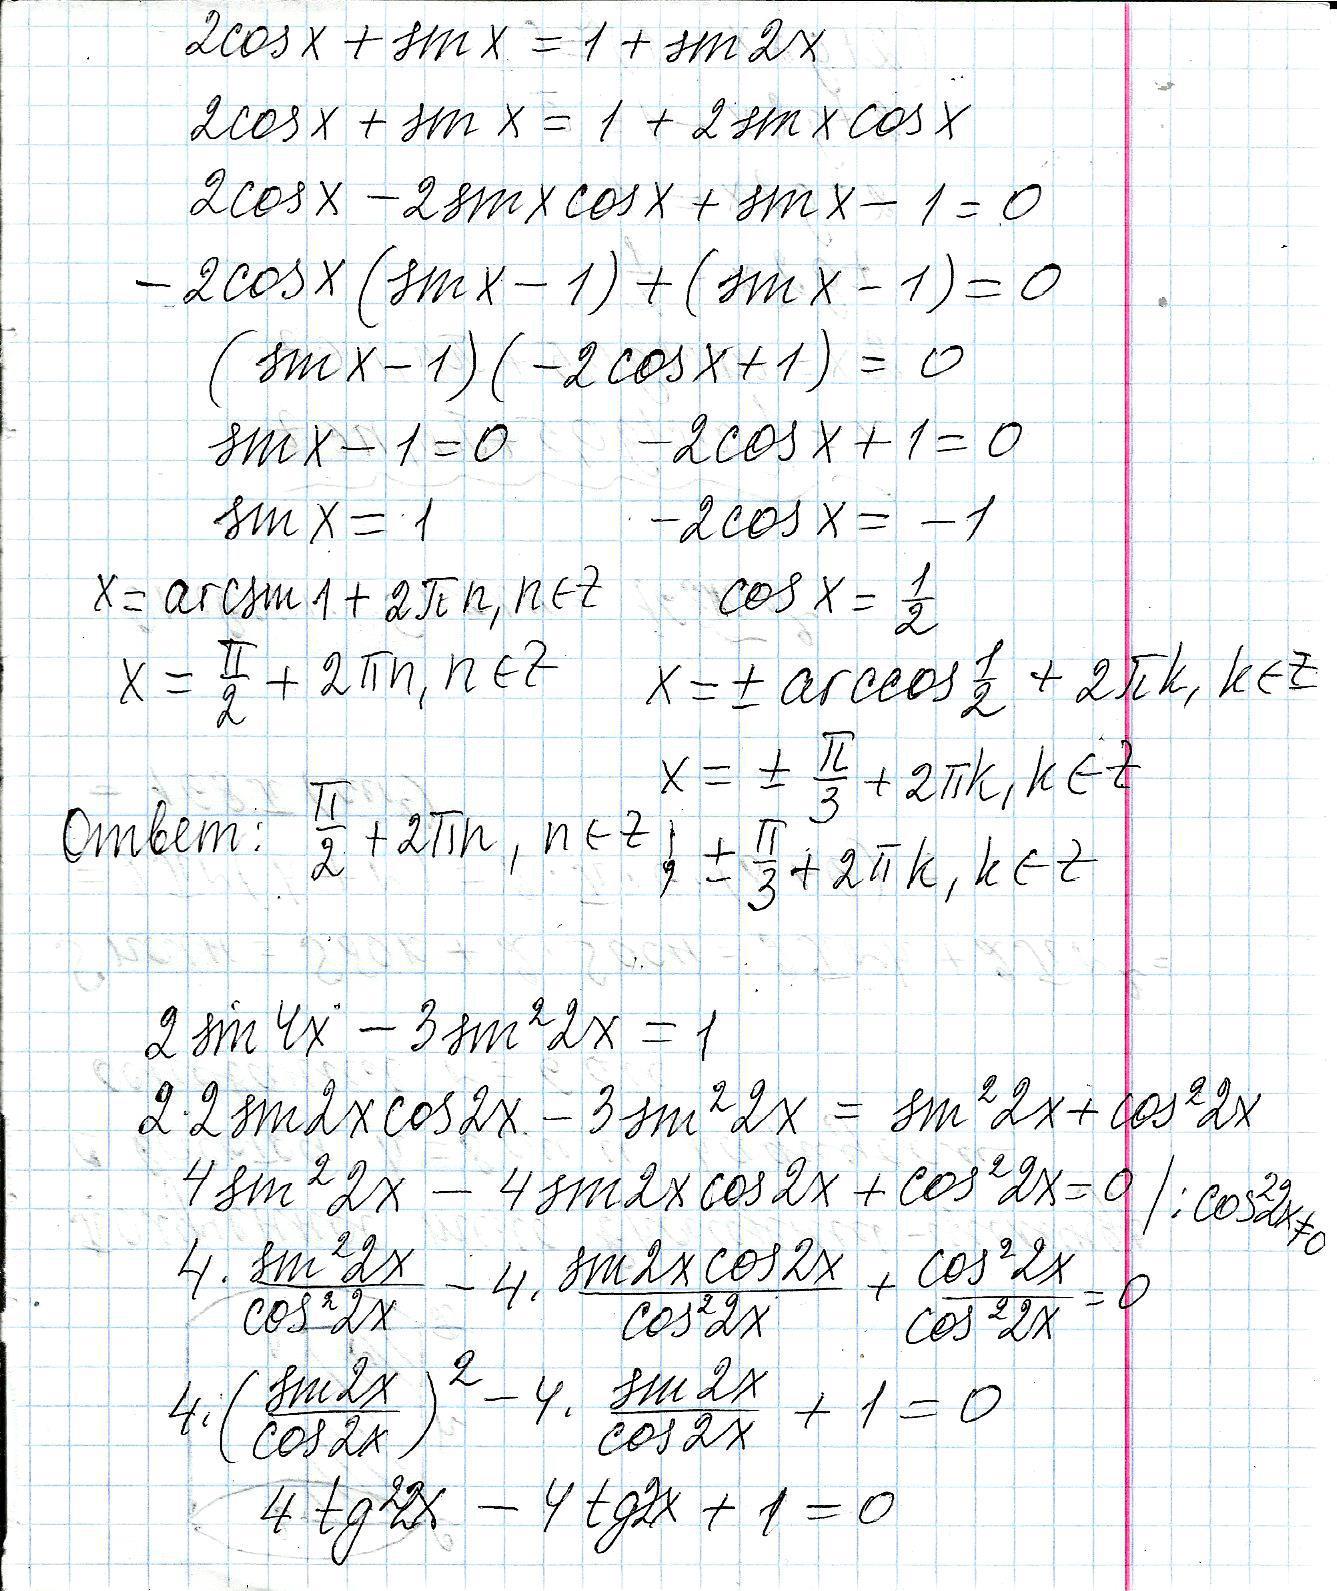 2cosx + sinx = 1 + sin2x
2cosx + sinx = 1 + 2sinxcosx
2cosx - 2sinxcosx + sinx - 1 = 0
-2cosx(sinx - 1) + (sinx - 1) = 0
(sinx - 1)(-2cosx + 1) = 0
sinx - 1 = 0 -2cosx + 1 = 0
sinx = 1 -2cosx = -1
x = arcsin1 + 2πn, n∈Z cosx = 1/2
x = π/2 + 2πn, n∈Z x = ± arccos 1/2 + 2πk, k∈Z
x = ± π/3 + 2πk, k∈Z
Ответ: π/2 + 2πn, n∈Z; ± π/3 + 2πk, k∈Z
2sin4x - 3sin²2x = 1
2·2sin2xcos2x - 3sin²2x = sin²2x + cos²2x
4sin²2x - 4sin2xcos2x + cos²2x = 0 /:cos²2x≠0
4·sin²2x/cos²2x - 4·sin2xcos2x/cos²2x + cos²2x/cos²2x = 0
4·(sin2x/cos2x)² - 4·sin2x/cos2x + 1 = 0
4tg²2x - 4tg2x + 1 = 0